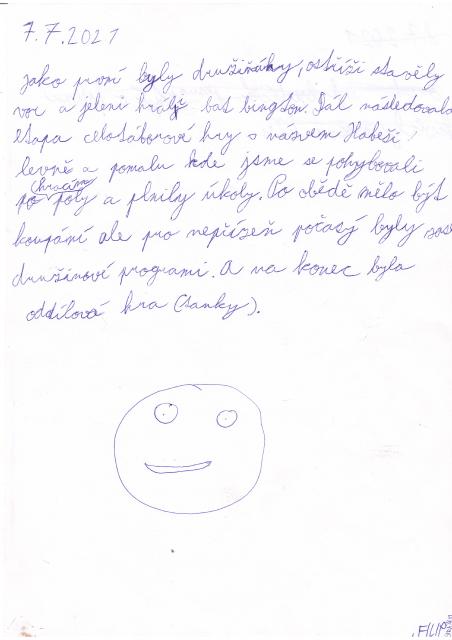 7.7.2021
jako první byly družiňáky, ostříži stavěly
vor a jeleni hráli bat bington. Dál následovala
etapa celotáborové hry s názvem Habeši
levně a pomalu kde jsme se pohybovali
hracím
po poly a plnily úkoly. Po obědě mělo být
koupání ale pro nepřízeň počasý byly zase
družinové programi. A na konec byla
oddílová hra (tanky).
FILIP